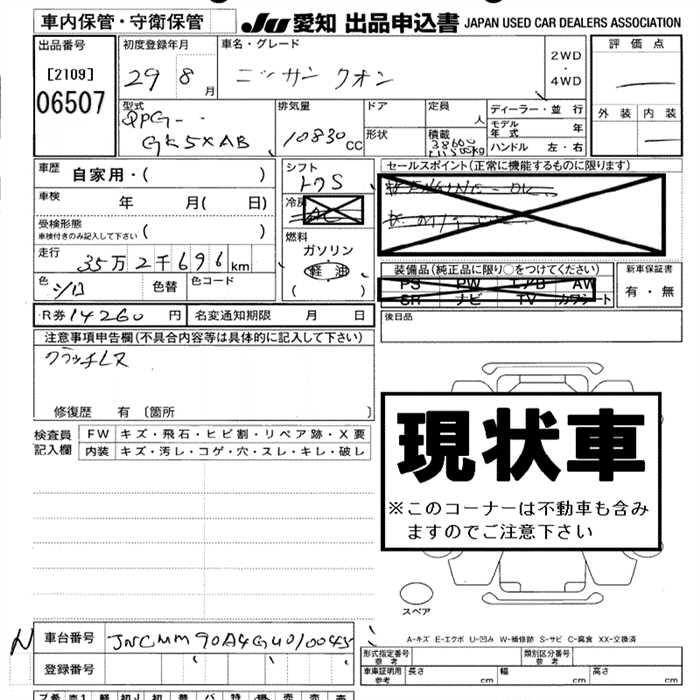 車内保管・守衛保管
JU 愛知 出品申込書 JAPAN USED CAR DEALERS ASSOCIATION
出品番号
[2109]
06507
初度登録年月
29 8月
車名・グレード
ニッサン クオン
2WD
・
4WD
評価点
外装 内装
型式
QPG-
GK5XAB
排気量
10830cc
ドア
形状
定員
人
積載
kg
ディーラー・並行
モデル年式 年
ハンドル 左・右
車歴
自家用・( )
車検
年 月( 日)
受検形態
車検付きのみ記入して下さい
( )
走行
35万2千696km
色
シロ
色替
色コード
シフト
冷房
AC
燃料
ガソリン
(軽油)
( )
セールスポイント(正常に機能するものに限ります)
装備品(純正品に限り○をつけてください)
PS PW エアB AW
SR ナビ TV カワシート
新車保証書
有・無
R券 14260円
名変通知期限 月 日
後日品
注意事項申告欄(不具合内容等は具体的に記入して下さい)
クラッチレス
修復歴 有 〔箇所 〕
検査員記入欄
FW キズ・飛石・ヒビ割・リペア跡・X要
内装 キズ・汚レ・コゲ・穴・スレ・キレ・破レ
現状車
※このコーナーは不動車も含み
ますのでご注意下さい
スペア
A-キズ E-エクボ U-凹み W-補修跡 S-サビ C-腐食 XX-交換済
N
車台番号
JNCMM90A4GU010045
登録番号
形式指定番号
参考
類別区分番号
参考
車庫証明用
参考
長さ cm
幅 cm
高さ cm